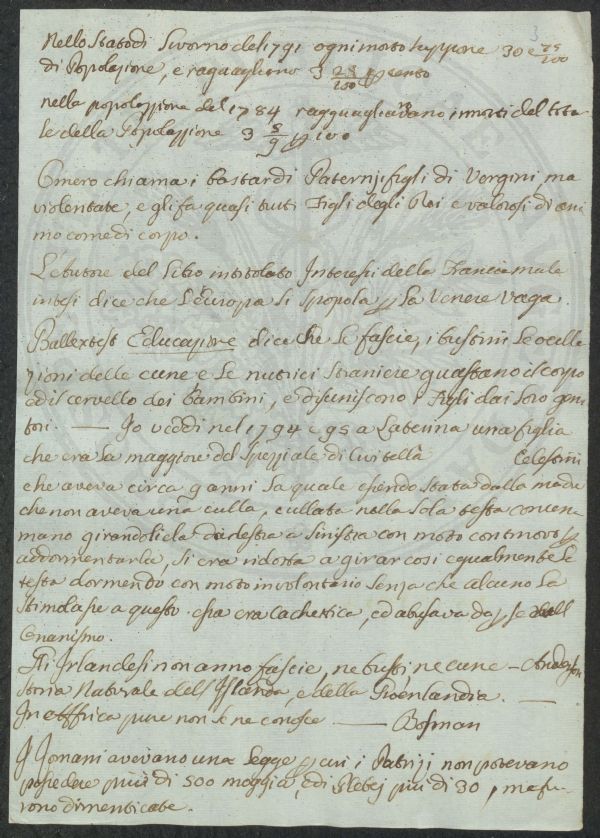 3
Nello Stato di Livorno del 1791 ogni morto suppone 30 e 75/100
di Popolazione, e raguagliono 3 28/100 p cento
nella popolazzione del 1784 ragguagliavano i morti del tota
le della Popolazzione 3 8/9 p 100
Omero chiama i bastardi Paternj figli di Vergini, ma
violentate, e gli fa quasi tutti Figli degli Dei e valorosi di ani
mo come di corpo.
L'Autore del Libro intitolato Interessi della Francia male
intesi dice che L'Europa si spopola p La Venere Vaga.
Ballexsest Educazione dice che Le fascie, i bustini Le oscilla
zioni delle cune e Le nutrici straniere guastano il corpo
ed il cervello dei bambini, e disuniscono i Figli dai Loro geni
tori. — Io veddi nel 1794 e 95 a Laterina una figlia
che era La maggiore del Speziale di Civitella Celestini
che aveva circa 9 anni La quale essendo stata dalla madre
che non aveva una culla, cullata nella sola testa con una
mano girandoliela da destra a sinistra con moto continovo p
addormentarla, si era ridotta a girar cosi egualmente La
testa dormendo con moto involontario senza che alcuno La
stimolasse a questo. essa era Cachettica, ed abusava da p se dell
Onanismo.
Gli Irlandesi non anno fascie, ne busti, ne cune — Anderson
Storia Naturale dell'Islanda, e della Groenlandia. —
In Affrica pure non se ne conosce — Bosman
I Romani avevano una Legge p cui i Patrizj non potevano
possedere più di 500 moggia, ed i Plebej più di 30, ma fu
rono dimenticate.